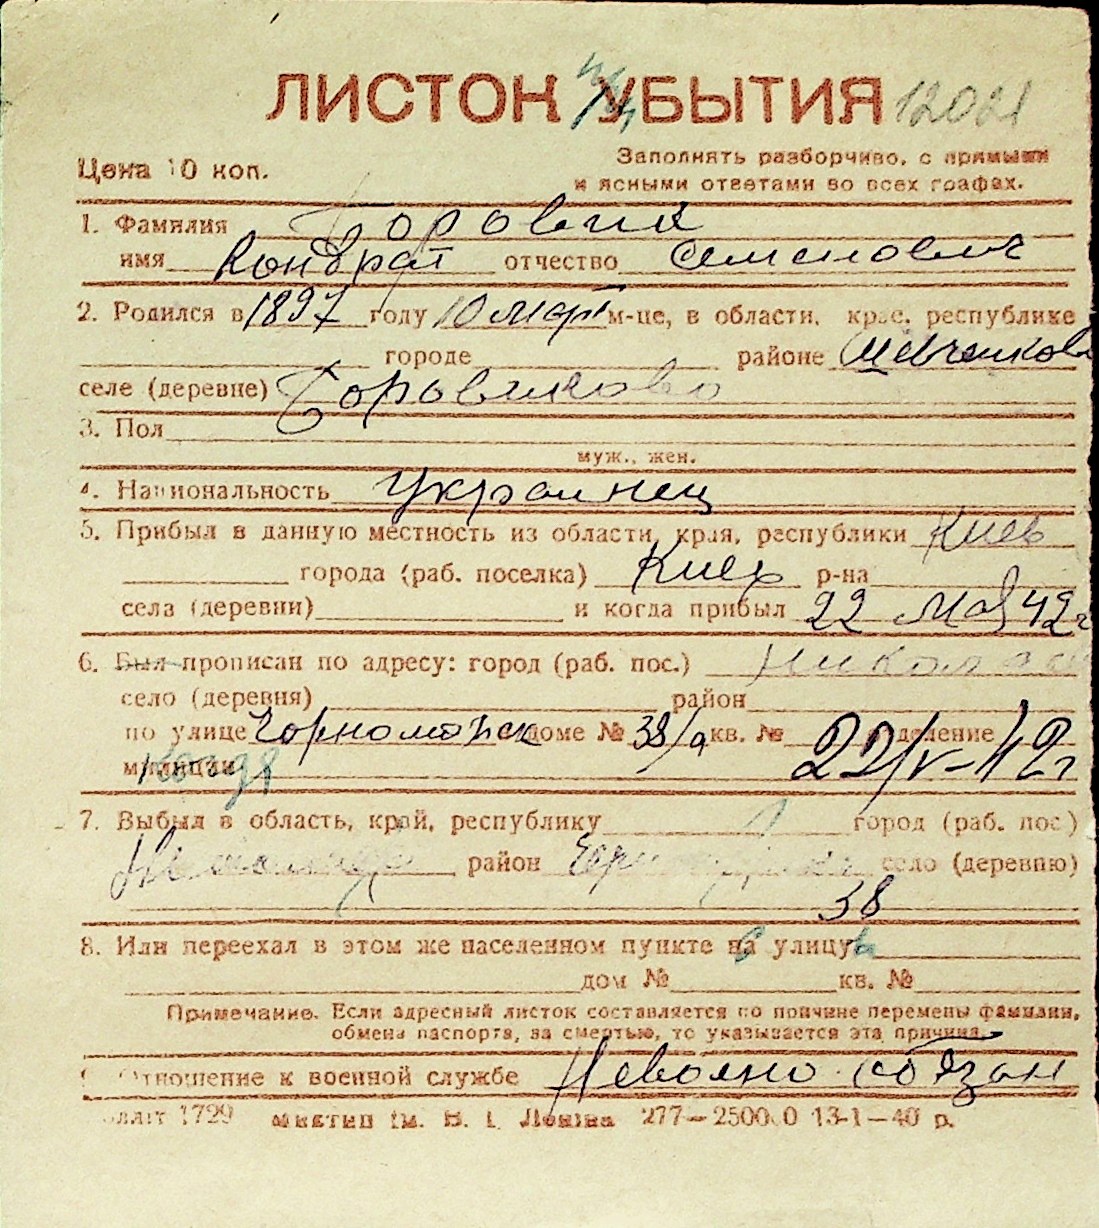 ЛИСТОК УБЫТИЯ 12021
Цена 10 коп.
Заполнять разборчиво, с прямыми
и ясными ответами во всех графах.
1. Фамилия Боровик
имя Кондрат отчество Семенович
2. Родился в 1897 году 10 март м-це, в области, крае, республике
городе районе Шевченково
селе (деревне) Боровиково
3. Пол
муж., жен.
4. Национальность Украинец
5. Прибыл в данную местность из области, края, республики Киев
города (раб. поселка) Киев р-на
села (деревни) и когда прибыл 22 мая 42 г
6. Был прописан по адресу: город (раб. пос.) Николаев
село (деревня) район
по улице Чорноморск доме № 38/а кв. № деление
милиции 22/V-42 г
7. Выбыл в область, край, республику город (раб. пос.)
район село (деревню)
38
8. Или переехал в этом же населенном пункте на улицу
дом № кв. №
Примечание. Если адресный листок составляется по причине перемены фамилии,
обмена паспорта, за смертью, то указывается эта причина.
Отношение к военной службе Невоенно обязан
1729 им. В. І. Леніна 277—25000 13-1—40 р.